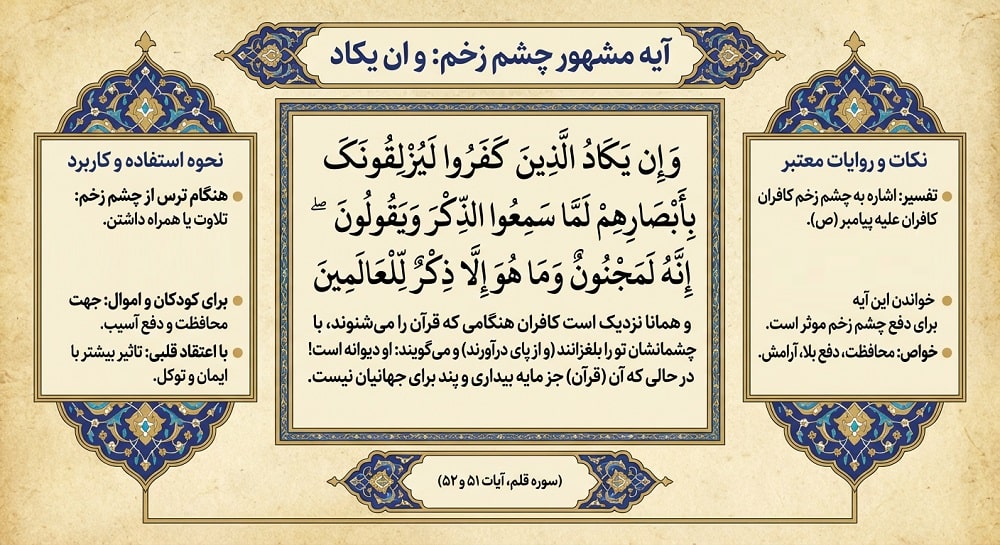 آیه مشهور چشم زخم: و ان یکاد
نکات و روایات معتبر
تفسیر: اشاره به چشم زخم کافران
کافران علیه پیامبر (ص).
خواندن این آیه
برای دفع چشم زخم موثر است.
خواص: محافظت، دفع بلا، آرامش.
وَإِن يَكَادُ الَّذِينَ كَفَرُوا لَيُزْلِقُونَكَ
بِأَبْصَارِهِمْ لَمَّا سَمِعُوا الذِّكْرَ وَيَقُولُونَ ۖ
إِنَّهُ لَمَجْنُونٌ وَمَا هُوَ إِلَّا ذِكْرٌ لِّلْعَالَمِينَ
و همانا نزدیک است کافران هنگامی که قرآن را می‌شنوند، با
چشمانشان تو را بلغزانند (و از پای درآورند) و می‌گویند: او دیوانه است!
در حالی که آن (قرآن) جز مایه بیداری و پند برای جهانیان نیست.
نحوه استفاده و کاربرد
هنگام ترس از چشم زخم:
تلاوت یا همراه داشتن.
برای کودکان و اموال: جهت
محافظت و دفع آسیب.
با اعتقاد قلبی: تاثیر بیشتر با
ایمان و توکل.
(سوره قلم، آیات ۵۱ و ۵۲)